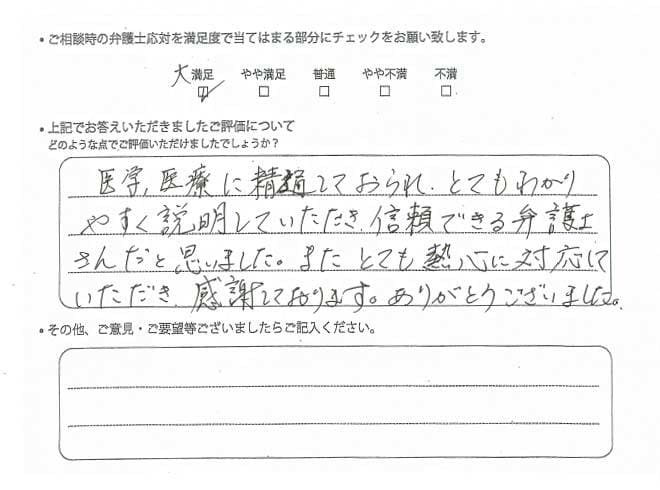 • ご相談時の弁護士応対を満足度で当てはまる部分にチェックをお願い致します。
大満足 やや満足 普通 やや不満 不満
☑ □ □ □ □
• 上記でお答えいただきましたご評価について
どのような点でご評価いただけましたでしょうか？
医学、医療に精通しておられ、とてもわかり
やすく説明していただき、信頼できる弁護士
さんだと思いました。またとても熱心に対応して
いただき、感謝しております。ありがとうございました。
• その他、ご意見・ご要望等ございましたらご記入ください。